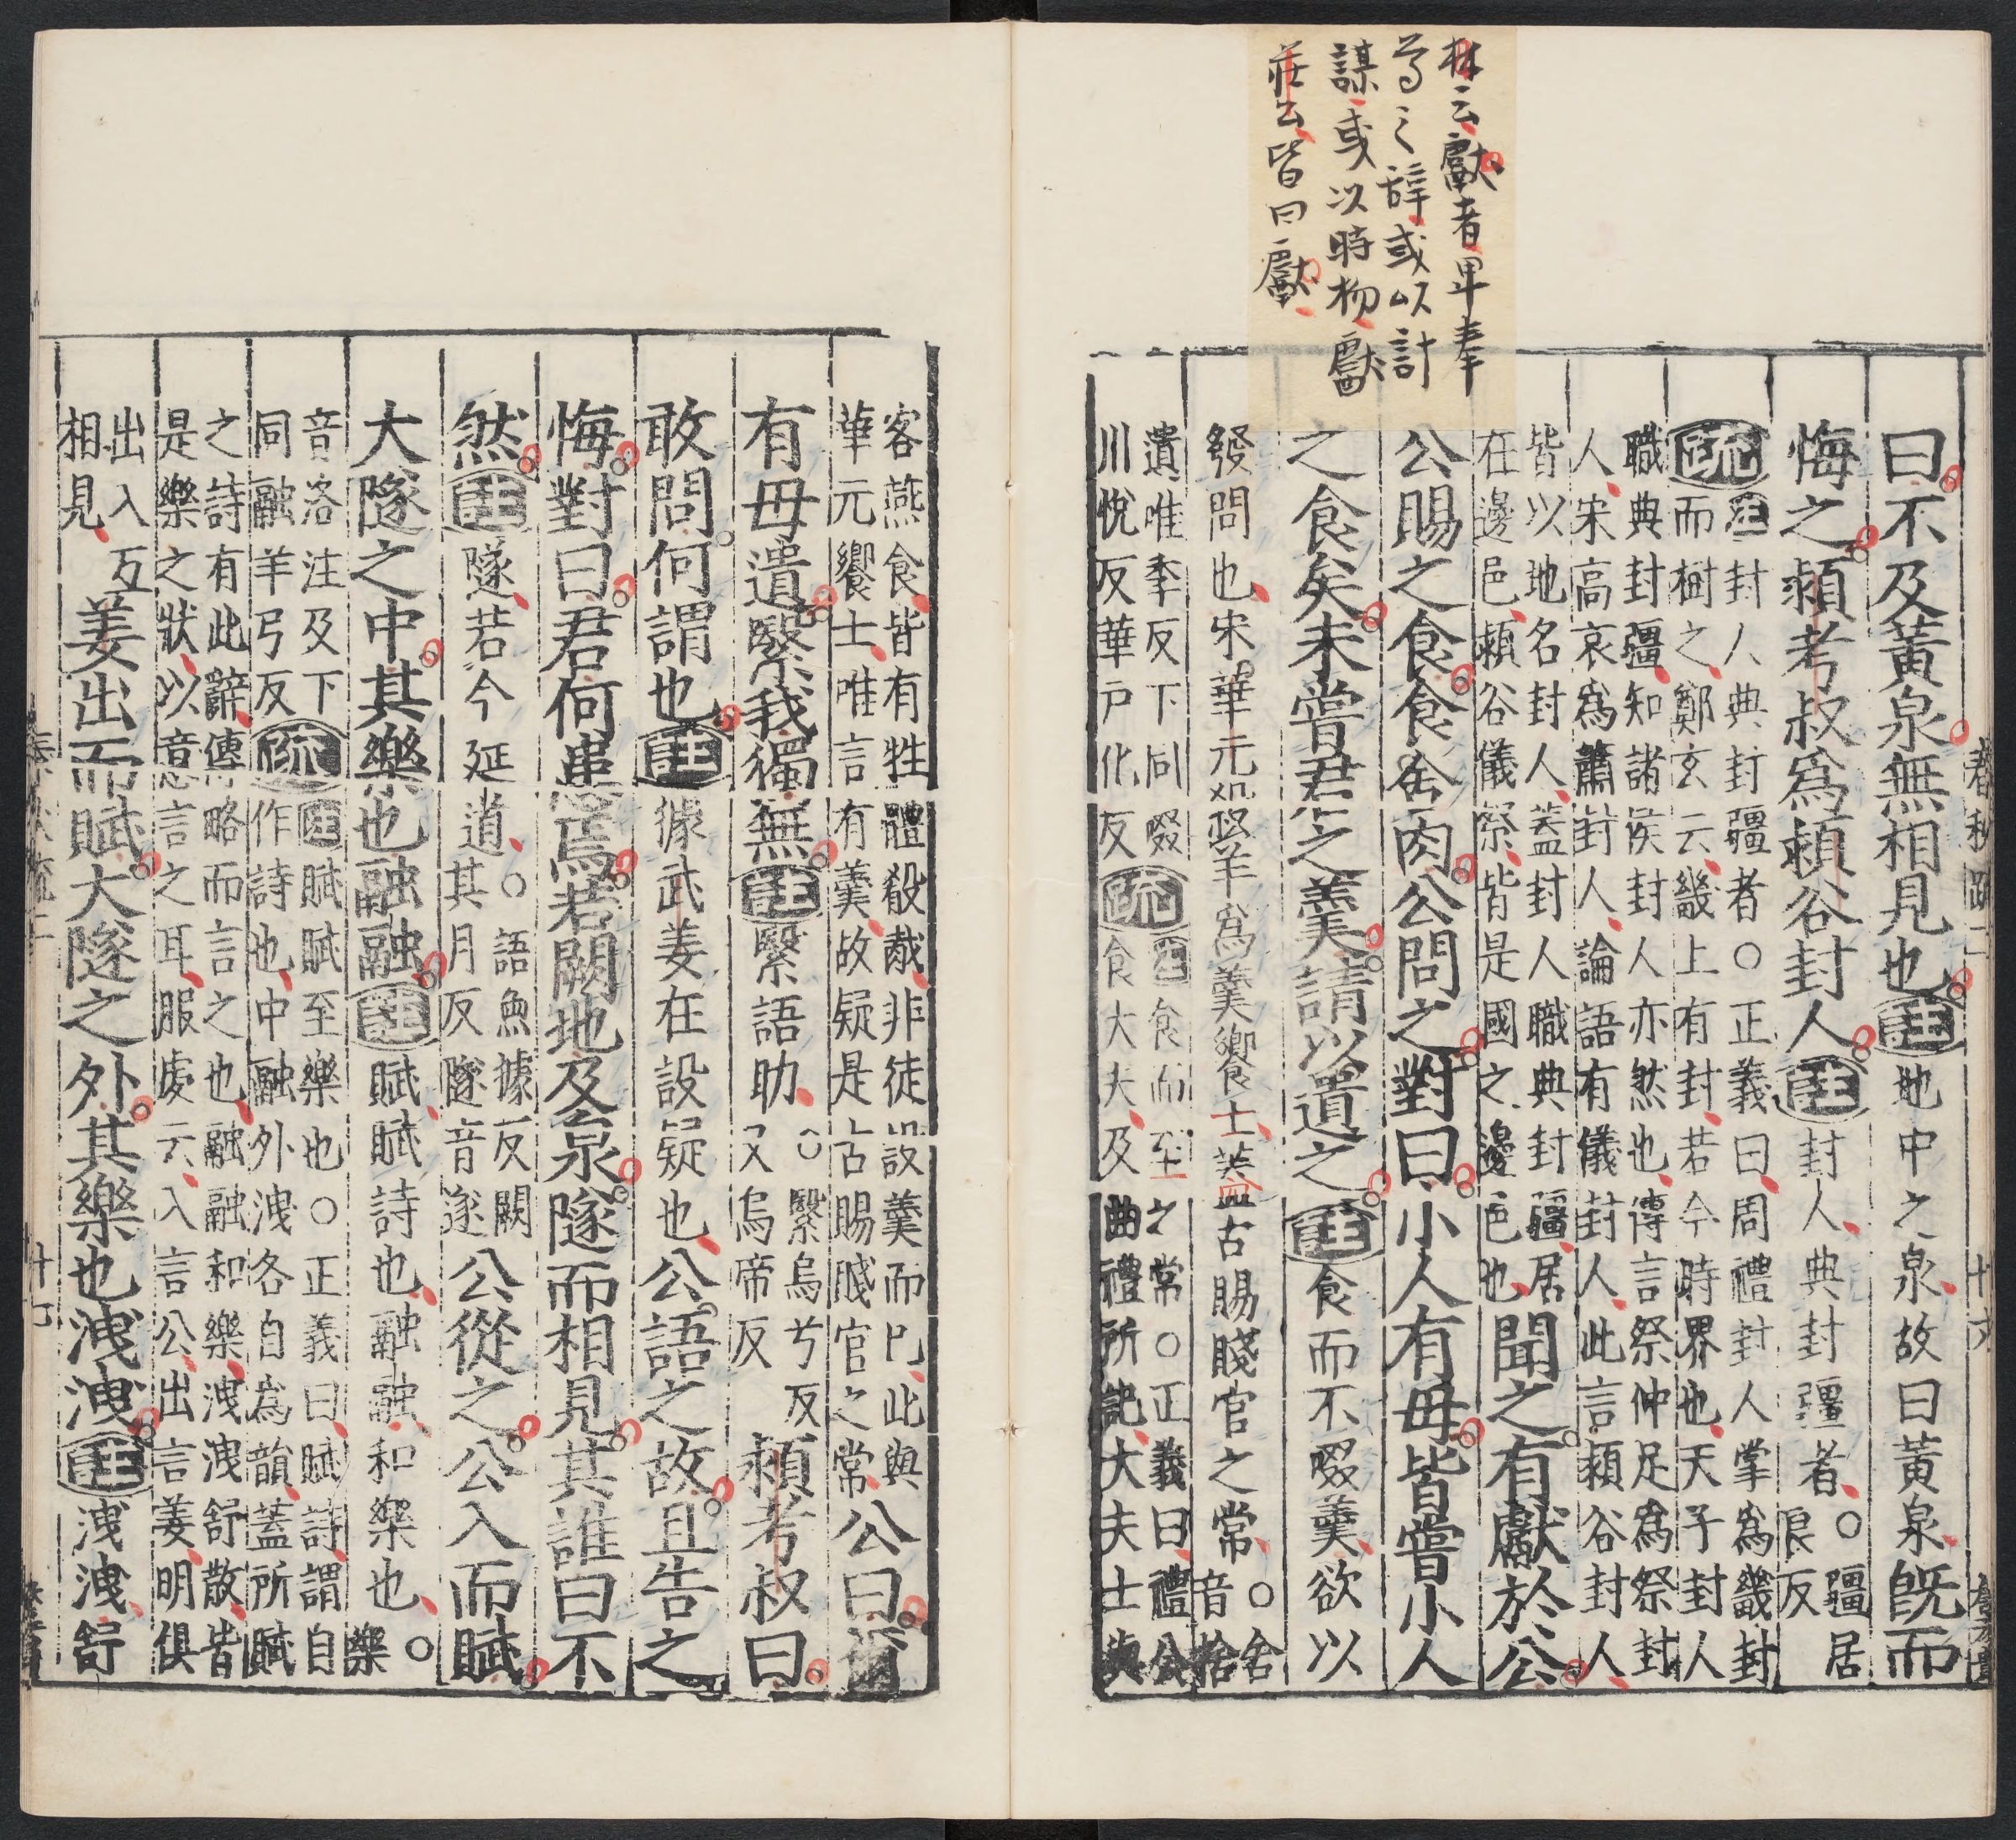 林云獻者卑奉
尊之辭或以計
謀或以時物獻
莊公皆曰獻
春秋疏二 十六
曰不及黃泉無相見也註地中之泉故曰黃泉既而
悔之潁考叔爲潁谷封人註封人典封疆者○疆居
良反
疏注封人典封疆者○正義曰周禮封人掌爲畿封
而樹之鄭玄云畿上有封若今時界也天子封人
職典封疆知諸侯封人亦然也傳言祭仲足爲祭封
人宋高哀爲蕭封人論語有儀封人此言潁谷封人
皆以地名封人蓋封人職典封疆居
在邊邑潁谷儀祭皆是國之邊邑也聞之有獻於公
公賜之食食舍肉公問之對曰小人有母皆嘗小人
之食矣未嘗君之羹請以遺之註食而不啜羹欲以
發問也宋華元殺羊爲羹饗士蓋古賜賤官之常○舍
音捨
遺唯季反下同啜
川悅反華戶化反疏注食而至之常○正義曰禮公
食大夫及曲禮所記大夫士與
客燕食皆有牲體殽胾非徒設羹而已此與
華元饗士唯言有羹故疑是古賜賤官之常公曰爾
有母遺繄我獨無註繄語助○繄烏兮反
又烏帝反潁考叔曰
敢問何謂也註據武姜在設疑也公語之故且告之
悔對曰君何患焉若闕地及泉隧而相見其誰曰不
然註隧若今延道○語魚據反闕
其月反隧音遂公從之公入而賦
大隧之中其樂也融融註賦賦詩也融融和樂也○
樂
音洛注及下
同融羊弓反疏注賦賦至樂也○正義曰賦詩謂自
作詩也中融外洩各自為韻蓋所賦
之詩有此辭傳略而言之也融融和樂洩洩舒散皆
是樂之狀以意言之耳服虔云入言公出言姜明俱
出入互
相見姜出而賦大隧之外其樂也洩洩註洩洩舒
十七